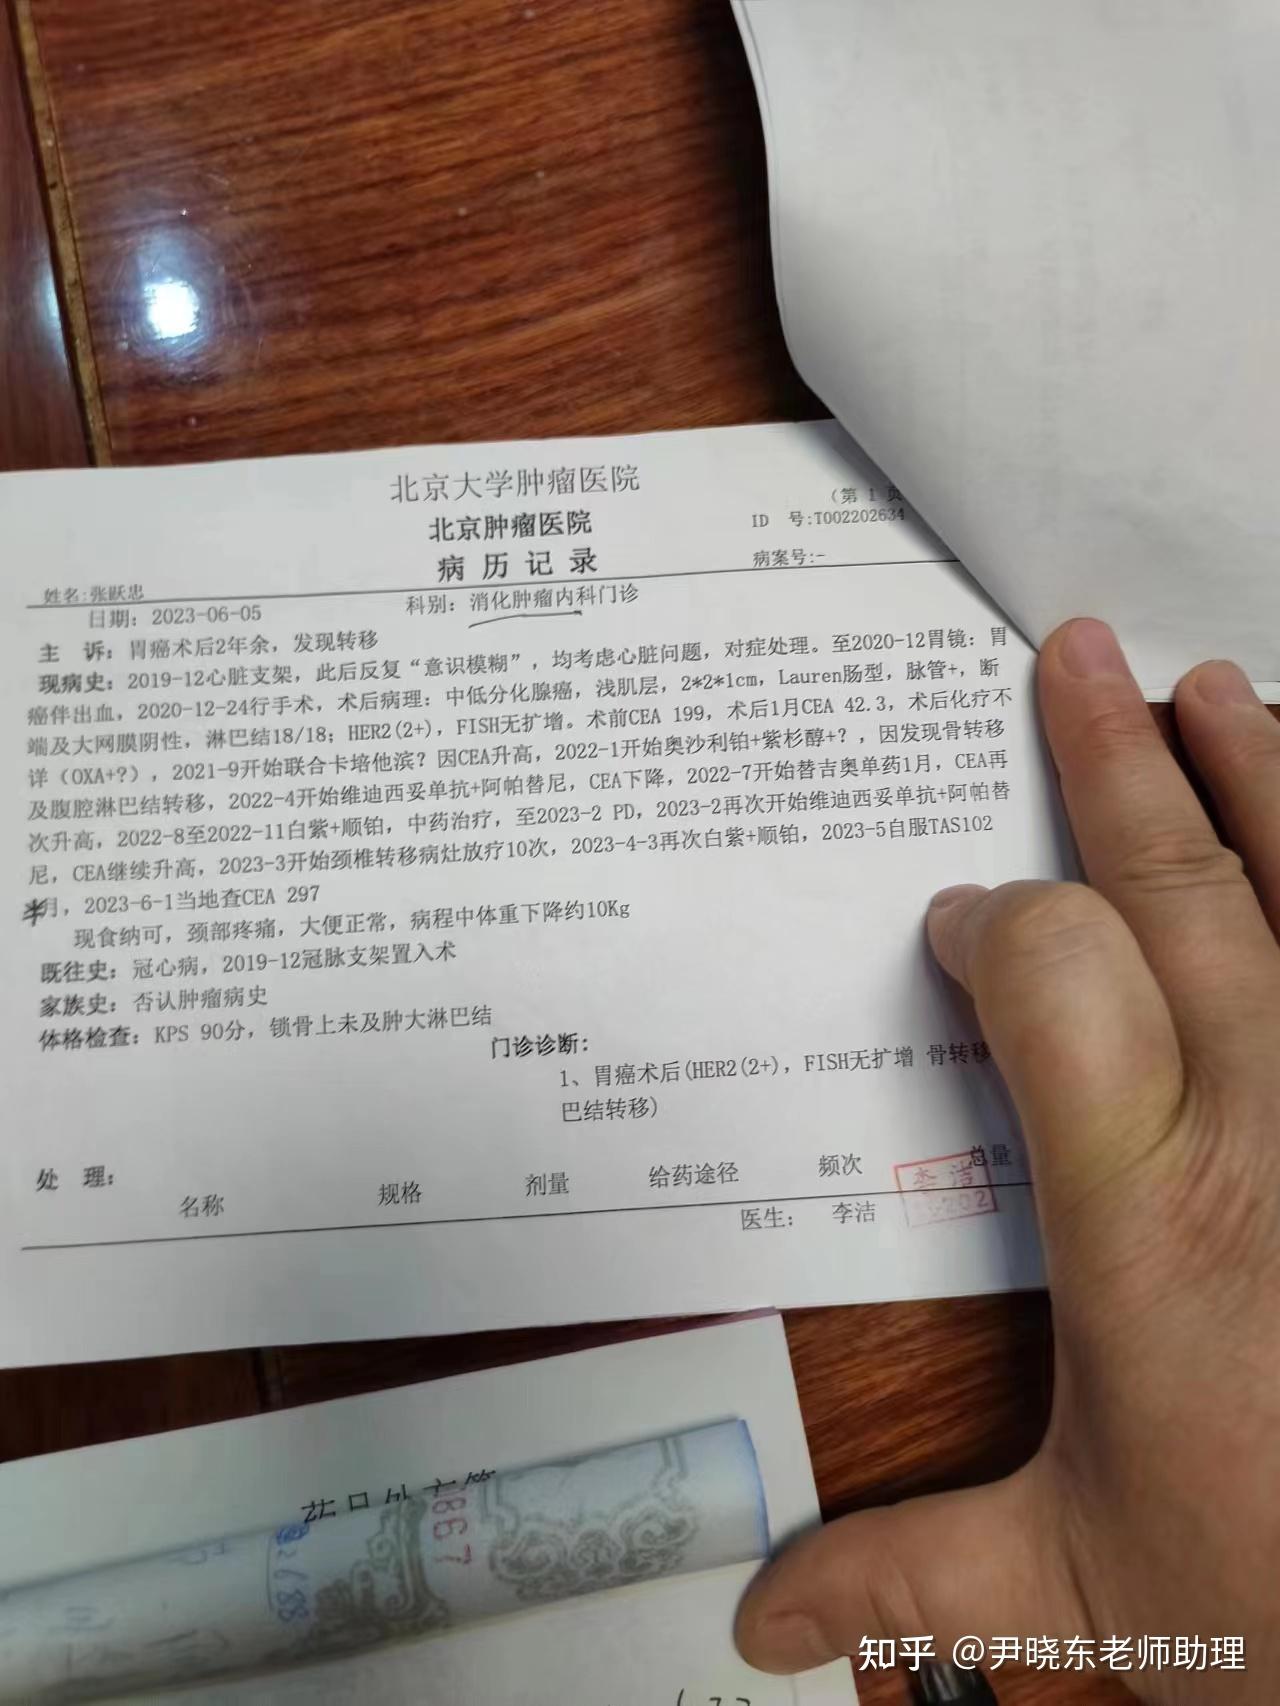 北京大学肿瘤医院
北京肿瘤医院
病 历 记 录
(第 1 页
ID 号:T002202634
病案号:-
姓名:张跃忠
日期: 2023-06-05
科别: 消化肿瘤内科门诊
主 诉: 胃癌术后2年余，发现转移
现病史: 2019-12心脏支架，此后反复“意识模糊”，均考虑心脏问题，对症处理。至2020-12胃镜: 胃
癌伴出血，2020-12-24行手术，术后病理: 中低分化腺癌，浅肌层，2*2*1cm，Lauren肠型，脉管+，断
端及大网膜阴性，淋巴结18/18; HER2(2+)，FISH无扩增。术前CEA 199，术后1月CEA 42.3，术后化疗不
详（OXA+?），2021-9开始联合卡培他滨？因CEA升高，2022-1开始奥沙利铂+紫杉醇+?，因发现骨转移
及腹腔淋巴结转移，2022-4开始维迪西妥单抗+阿帕替尼，CEA下降，2022-7开始替吉奥单药1月，CEA再
次升高，2022-8至2022-11白紫+顺铂，中药治疗，至2023-2 PD，2023-2再次开始维迪西妥单抗+阿帕替
尼，CEA继续升高，2023-3开始颈椎转移病灶放疗10次，2023-4-3再次白紫+顺铂，2023-5自服TAS102
半月，2023-6-1当地查CEA 297
现食纳可，颈部疼痛，大便正常，病程中体重下降约10Kg
既往史: 冠心病，2019-12冠脉支架置入术
家族史: 否认肿瘤病史
体格检查: KPS 90分，锁骨上未及肿大淋巴结
门诊诊断:
1、胃癌术后(HER2(2+)，FISH无扩增 骨转移
巴结转移)
处 理:
名称 规格 剂量 给药途径 频次 总量
医生: 李洁
李洁
202
867
知乎 @尹晓东老师助理